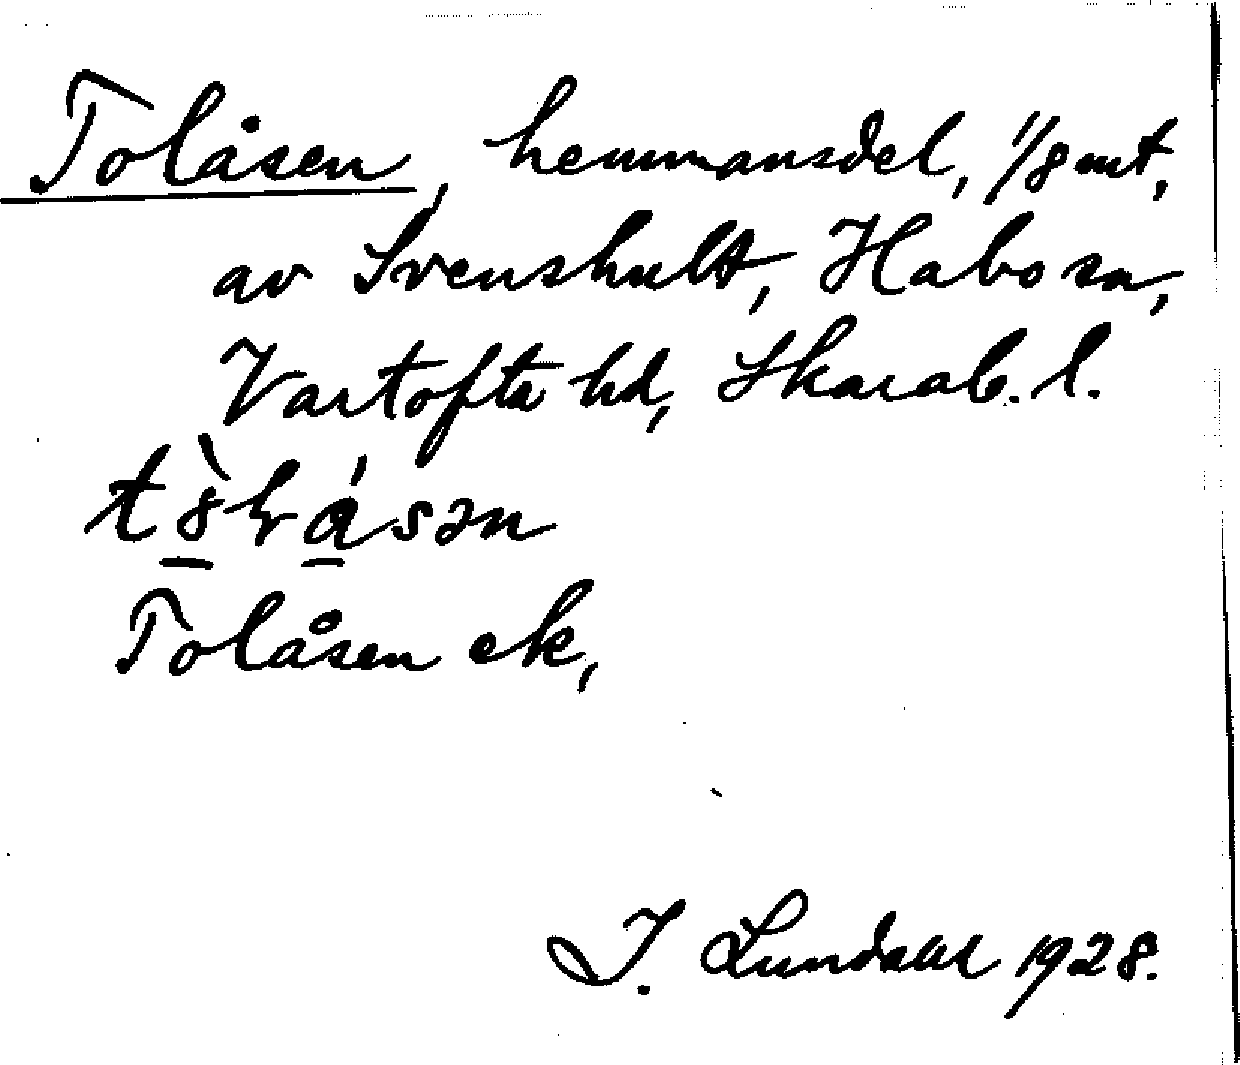 Tolåsen, hemmansdel, 1/8 mt,
av Svenshult, Habo sn,
Vartofta hd, Skarab. l.
Tolåsen ek,
I. Lundahl 1928.